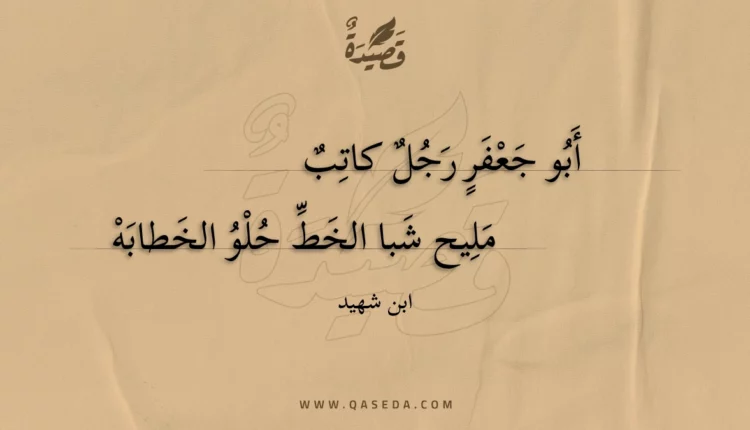 قَصِيدَةٌ
أَبُو جَعْفَرٍ رَجُلٌ كاتِبٌ
مَلِيح شَبا الخَطِّ حُلْوُ الخَطابَهْ
ابن شهيد
WWW.QASEDA.COM